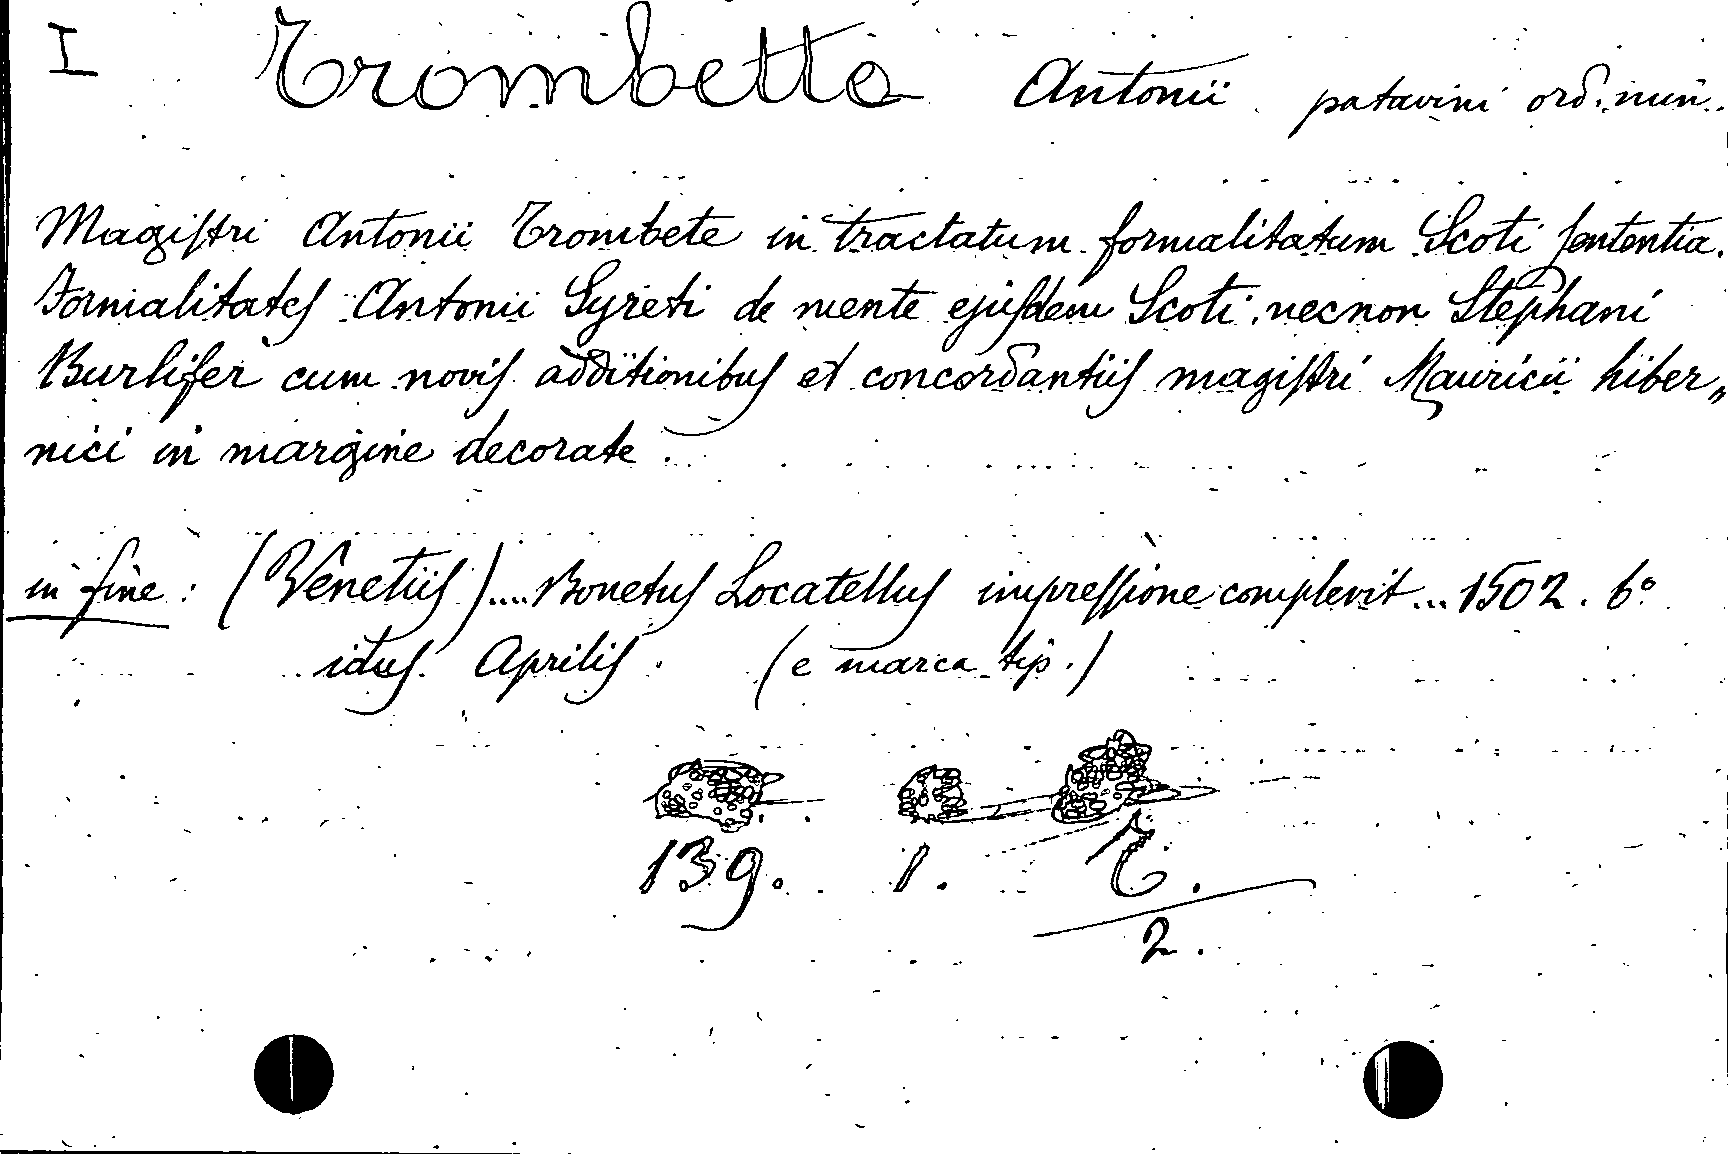 I Trombetta Antonii patavini ord. min.
Magistri Antonii Trombete in tractatum formalitatum Scoti sententia.
Formalitates Antonii Syreti de mente ejusdem Scoti. necnon Stephani
Burlifer cum novis additionibus et concordantiis magistri Mauricii hiber„
nici in margine decorate.
in fine: (Venetiis).... Bonetus Locatellus impressione complevit... 1502. 6°
idus Aprilis. (e marca tip.)
139. 1. T.
2.